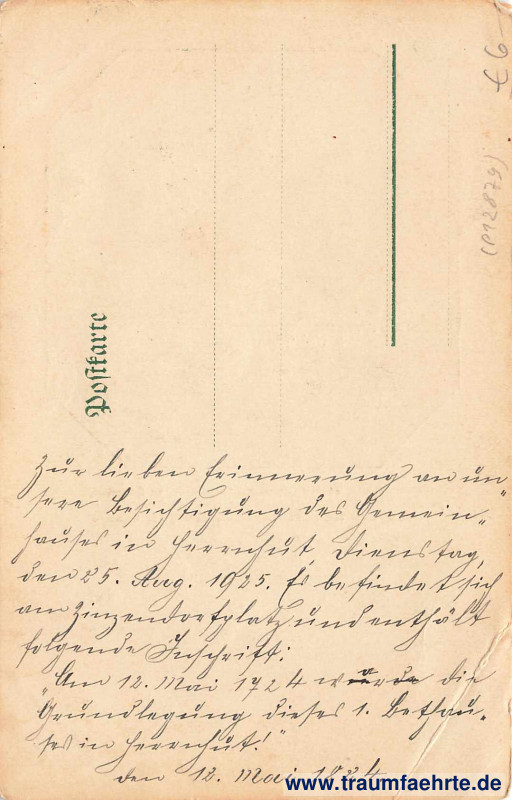 € 6-
(P12879)
Postkarte
Zur lieben Erinnerung an un„
sere Besichtigung des Gemein„
hauses in Herrnhut, Dienstag,
den 25. Aug. 1925. Es befindet sich
am Zinzendorfplatz und enthält
folgende Inschrift:
„Am 12. Mai 1724 die
Grundlegung dieses 1. Bethau„
ses in Herrnhut!"
den 12. Mai 1824
www.traumfaehrte.de